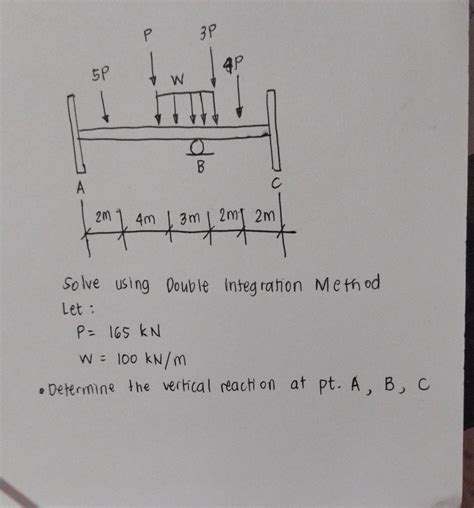 P 3P
5P 4P
W
B
A C
2m 4m 3m 2m 2m
Solve using Double Integration Method
Let :
P = 165 kN
W = 100 kN/m
• Determine the vertical reaction at pt. A, B, C